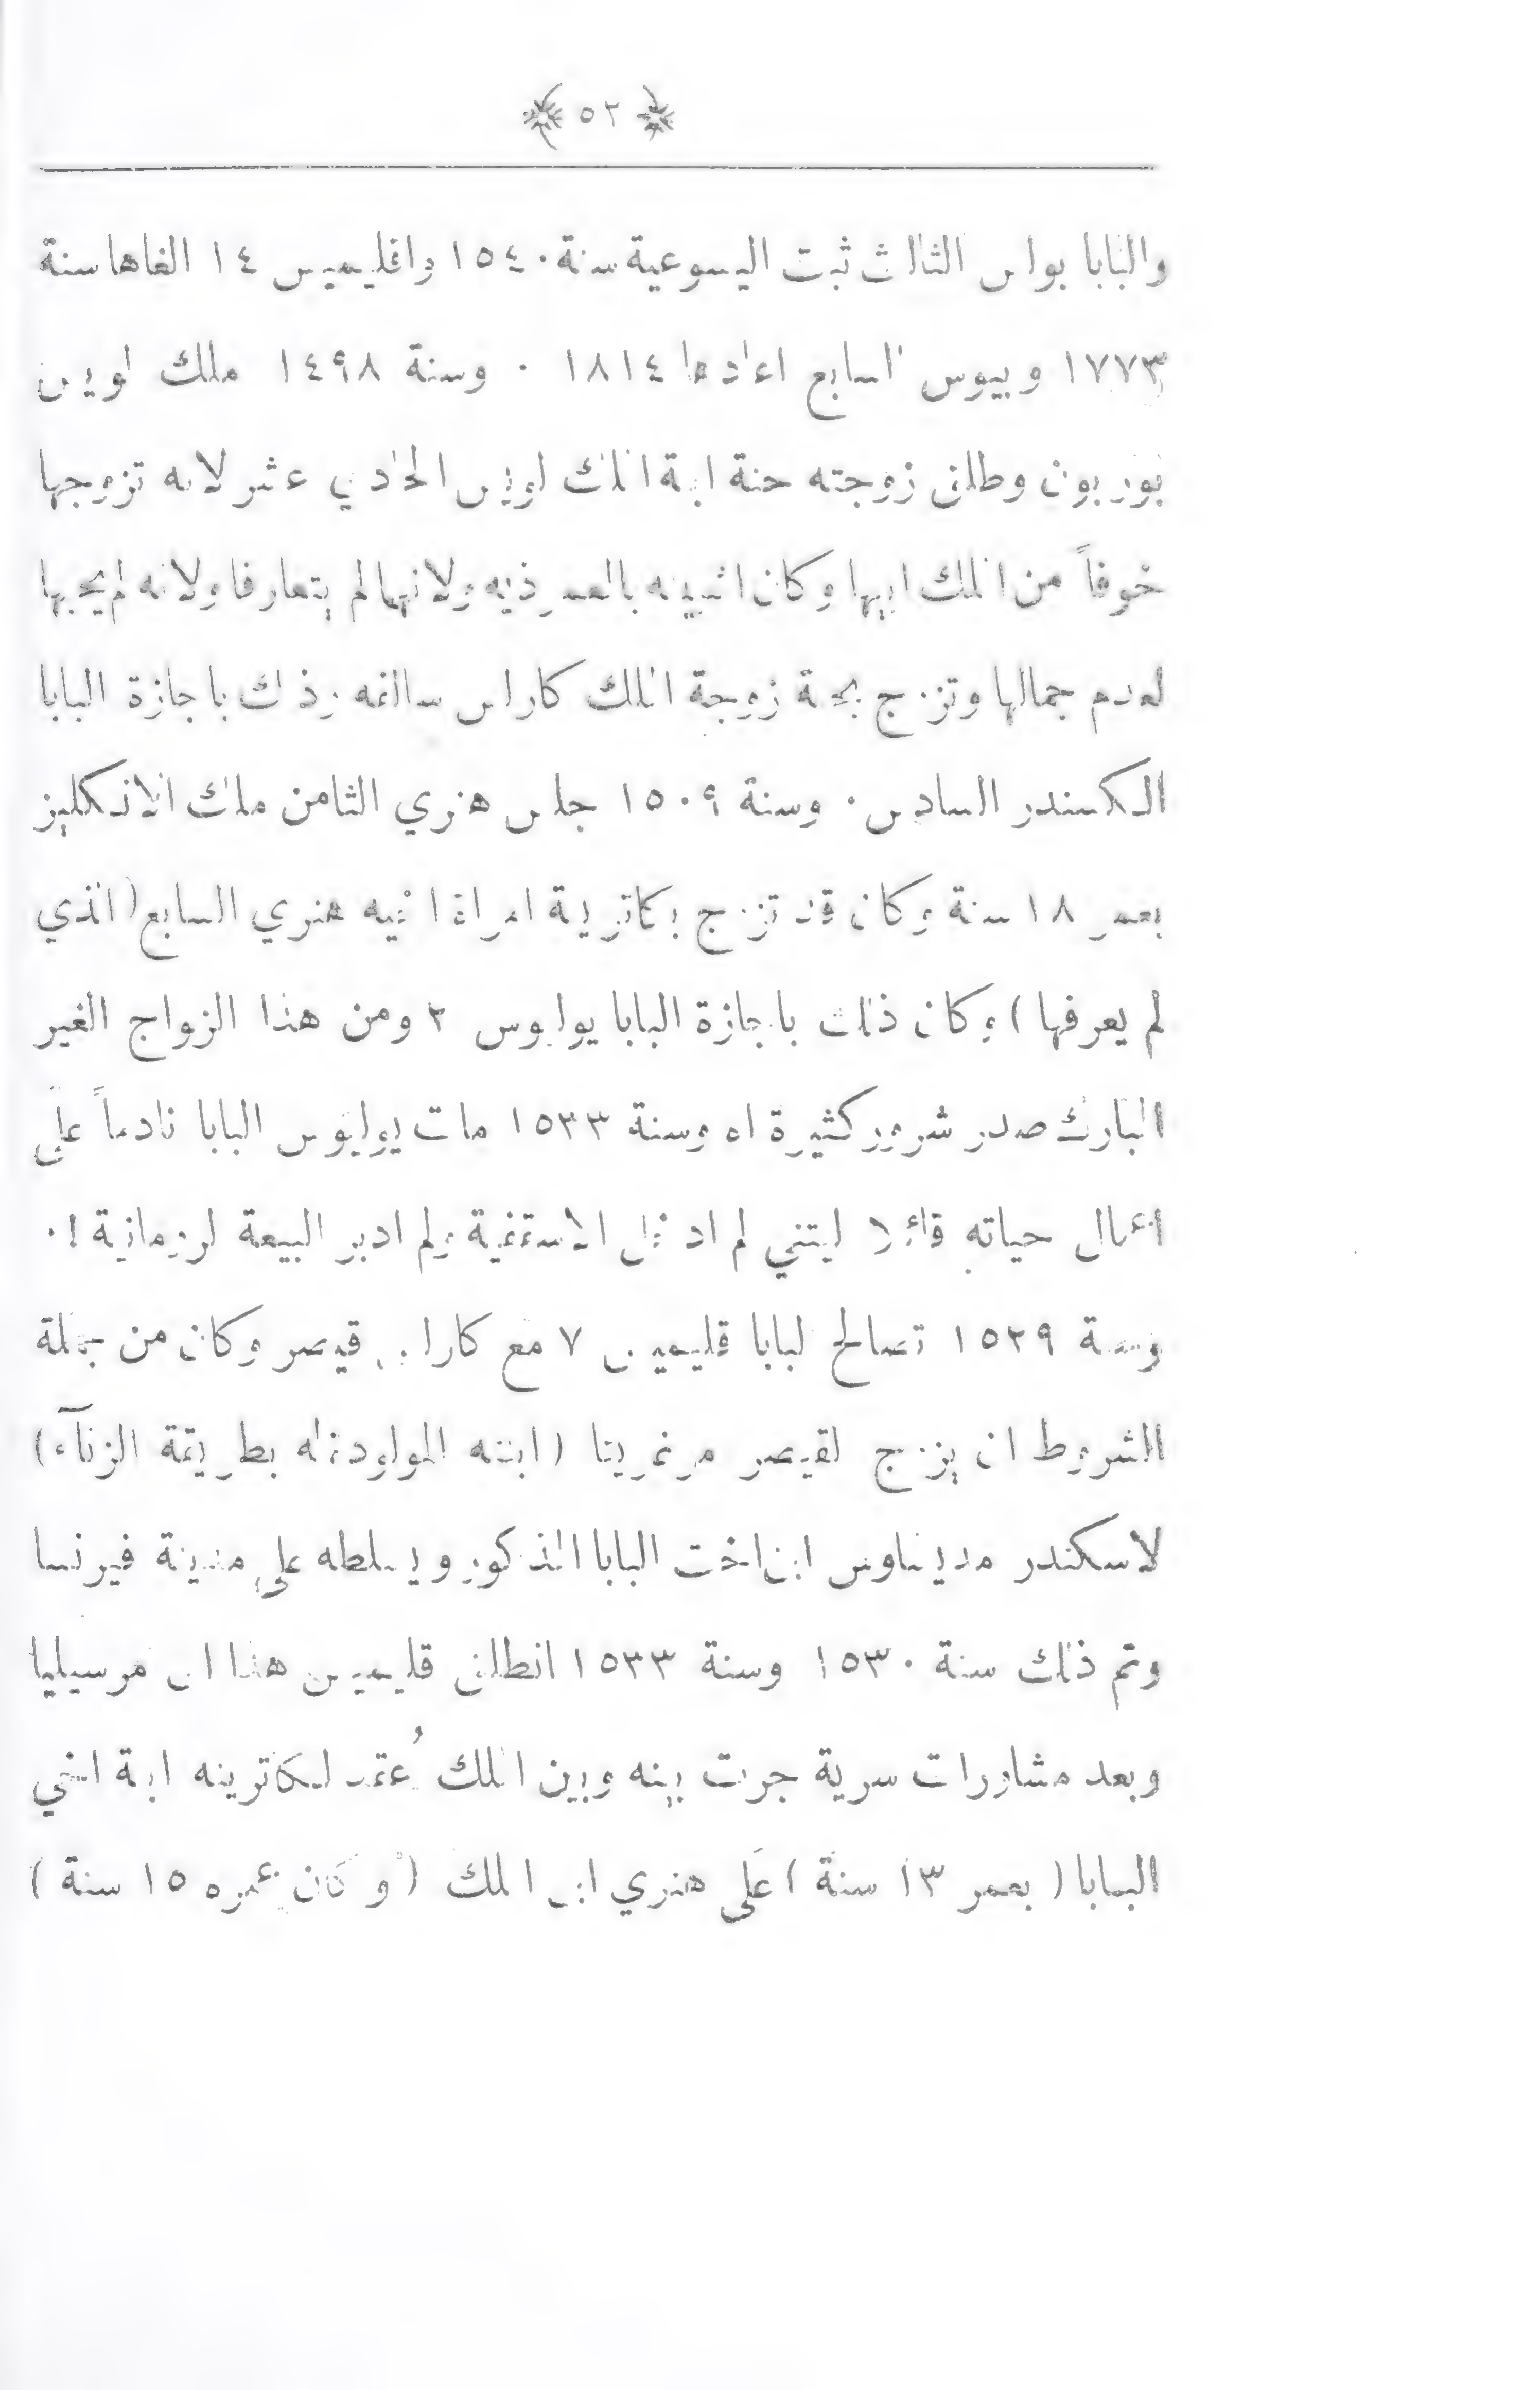 ﴿ ٥٢ ﴾
والبابا بولس الثالث ثبت اليسوعية سنة ١٥٤٠ واقليميس ١٤ الغاها سنة
١٧٧٣ وبيوس السابع اعادها ١٨١٤ ٠ وسنة ١٤٩٨ ملك لويس
بوربون وطلق زوجته حنة ابنة الملك لويس الحادي عشر لانه تزوجها
خوفاً من الملك ابيها وكان اشبينه بالمعموذيه ولانهما لم يتعارفا ولانه لم يحبها
لعدم جمالها وتزوج بحنة زوجة الملك كارلس سالفه وذلك باجازة البابا
الكسندر السادس ٠ وسنة ١٥٠٩ جلس هنري الثامن ملك الانكليز
بعمر ١٨ سنة وكان قد تزوج بكاترينة امراة اخيه هنري السابع (الذي
لم يعرفها) وكان ذلك باجازة البابا يوليوس ٢ ومن هذا الزواج الغير
المبارك صدر شرور كثيرة اه وسنة ١٥٣٣ مات يوليوس البابا نادماً على
اعمال حياته قائلا ليتني لم ادخل الاسقفية ولم ادبر البيعة لرومانية ! ٠
وسنة ١٥٢٩ تصالح لبابا قليميس ٧ مع كارلس قيصر وكان من جملة
الشروط ان يزوج القيصر مرغريتا (ابنته المولودة له بطريقة الزنآء)
لاسكندر مديشاوس ابن اخت البابا المذكور ويسلطه على مدينة فيرنسا
وتم ذلك سنة ١٥٣٠ وسنة ١٥٣٣ انطلق قليميس هذا الى مرسيليا
وبعد مشاورات سرية جرت بينه وبين الملك عُقد لكاترينه ابنة اخي
البابا (بعمر ١٣ سنة) عَلى هنري ابن الملك (وكان عمره ١٥ سنة)